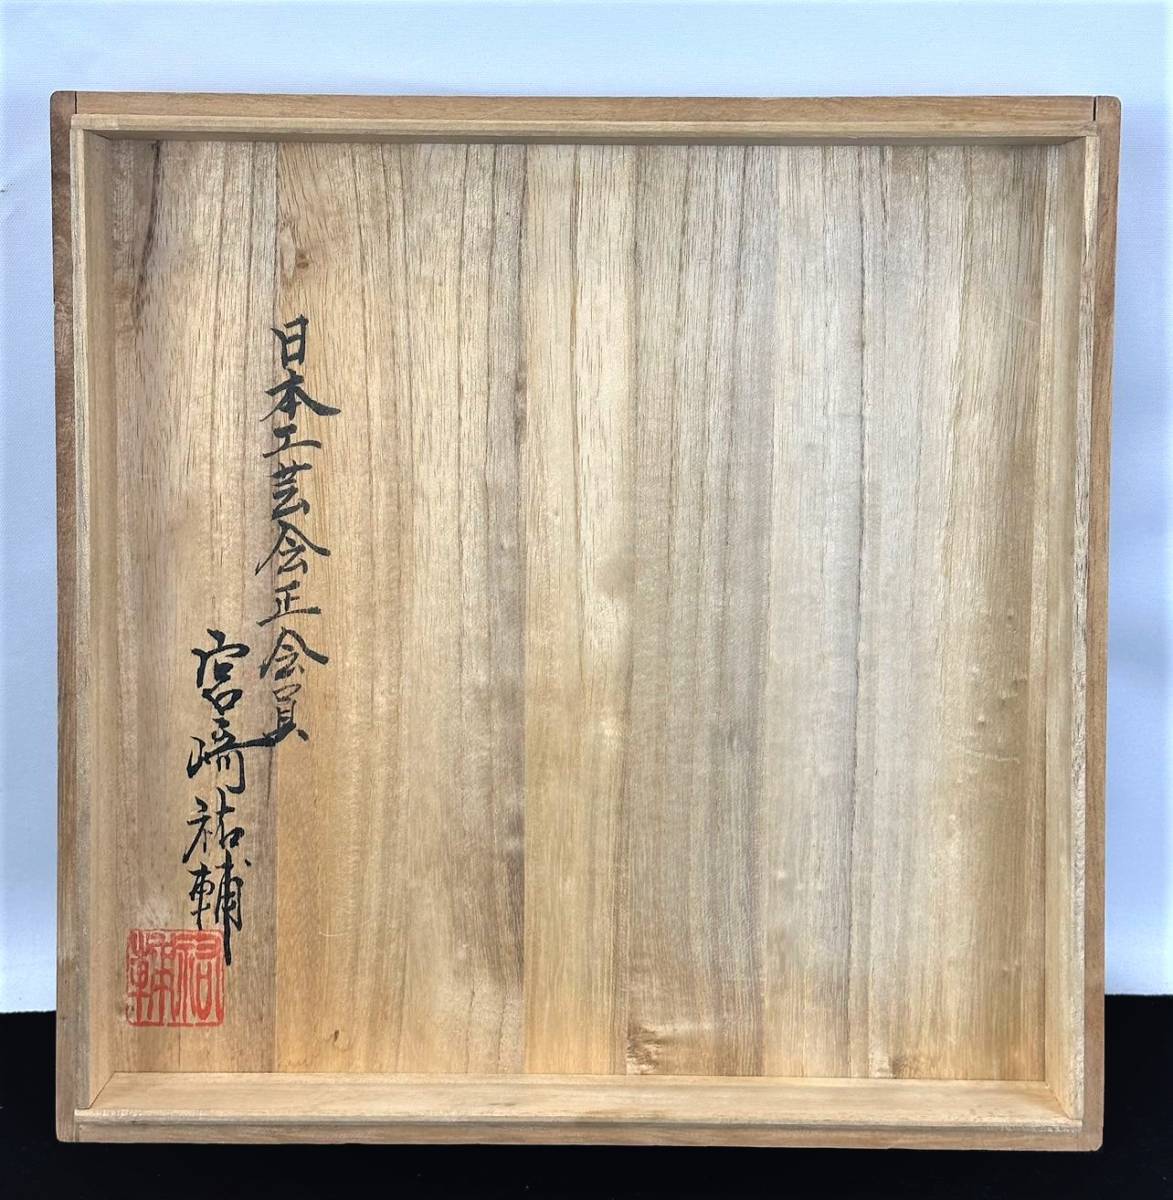 日本工芸会正会員
宮崎祐輔
祐輔